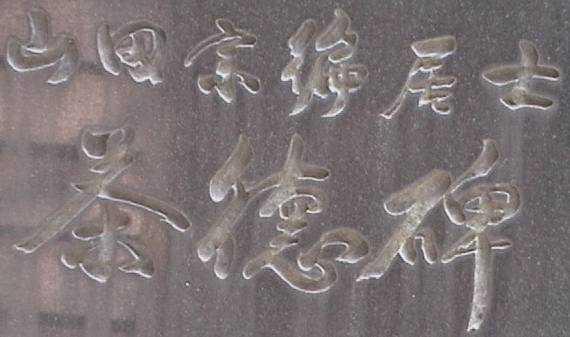 山田宗徧居士
茶德碑